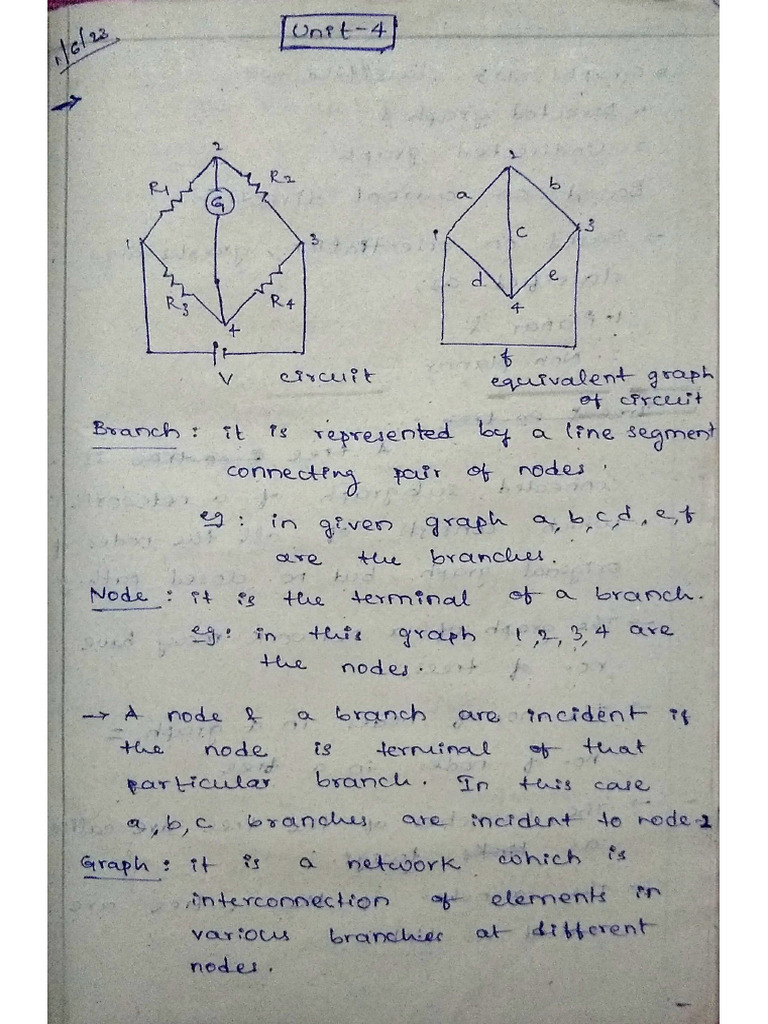 1/6/23
Unit-4
2
2
R1
R2
G
a
b
1
3
1
c
3
R3
R4
d
e
4
4
V
circuit
f
equivalent graph
of circuit
Branch : it is represented by a line segment
connecting pair of nodes.
eg : in given graph a,b,c,d,e,f
are the branches.
Node : it is the terminal of a branch.
eg: in this graph 1,2,3,4 are
the nodes.
→ A node & a branch are incident if
the node is terminal of that
particular branch. In this case
a,b,c branches are incident to node-2
Graph : it is a network which is
interconnection of elements in
various branches at different
nodes.